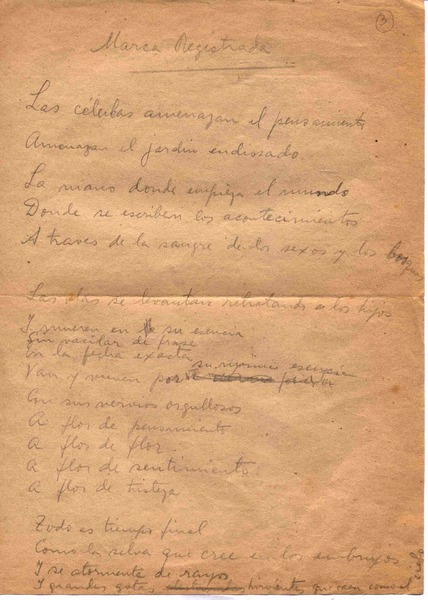 3
Marca Registrada
Las culebras amenazan el pensamiento
Amenazan el jardin endiosado
La mano donde empieza el mundo
Donde se escriben los acontecimientos
A traves de la sangre de los sexos y los bosques
Las olas se levantan retratando a los hijos
I mueren en su esencia
Sin vacilar de frase
En la fecha exacta
Van y vienen por su
Con sus nervios orgullosos
A flor de pensamiento
A flor de flor
A flor de sentimiento
A flor de tristeza
Todo es tiempo final
Como la selva que cree en los embrujos
I se atormenta de rayos
I grandes gotas hirvientes que caen como el